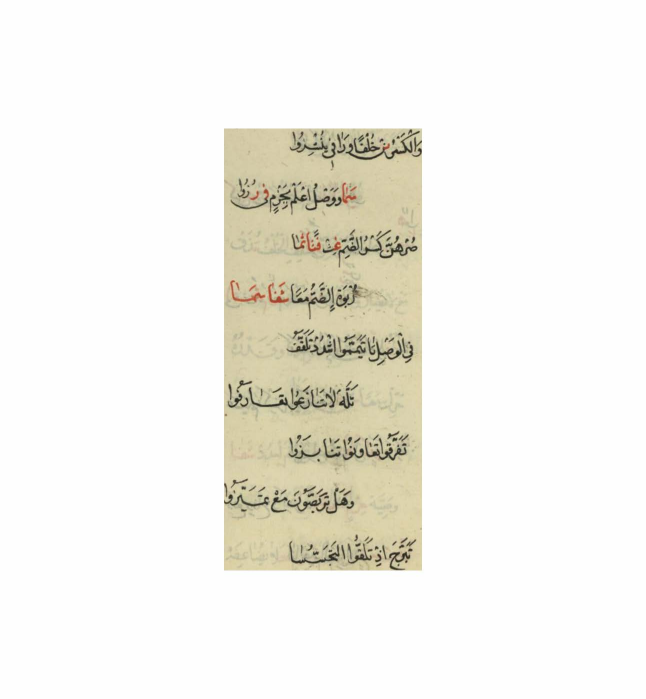 ورا في ننشزوا
سما ووصل اعلم بجزم في رزوا
صرهن كسر الضم غث فتا ثما
ربوة الضم معا شفا سما
في الوصل تا تيمموا اشدد تلقف
تله لا تنازعوا تعارفوا
تفرقوا تعاونوا تنابزوا
وهل تربصون مع تميزوا
تبرج اذ تلقوا التجسسا